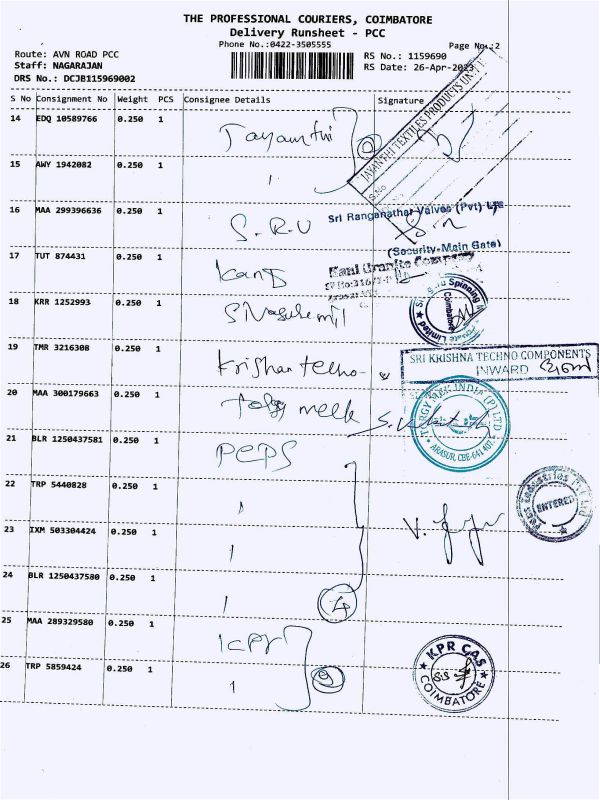 THE PROFESSIONAL COURIERS, COIMBATORE
Delivery Runsheet - PCC
Phone No.:0422-3505555
Page No.:2
Route: AVN ROAD PCC
RS No.: 1159690
Staff: NAGARAJAN
RS Date: 26-Apr-2023
DRS No.: DCJB115969002
S No Consignment No Weight PCS Consignee Details Signature
14 EDQ 10589766 0.250 1 Jayanthi
JAYANTHI TEXTILES PRODUCTS UNIT IV
S.No
15 AWY 1942082 0.250 1
16 MAA 299396636 0.250 1 S.R.U
Sri Ranganathar Valves (Pvt) Ltd
(Security-Main Gate)
17 TUT 874431 0.250 1
Kani Granite Company
18 KRR 1252993 0.250 1
Coimbatore
19 TMR 3216308 0.250 1 Krishna techno
SRI KRISHNA TECHNO COMPONENTS
INWARD
20 MAA 300179663 0.250 1
ARASUR, CBE-641 407.
21 BLR 1250437581 0.250 1 PEPS
22 TRP 5440828 0.250 1
ENTERED
23 IXM 503304424 0.250 1
24 BLR 1250437580 0.250 1
4
25 MAA 289329580 0.250 1 KPR
KPR CAS
COIMBATORE
26 TRP 5859424 0.250 1
2